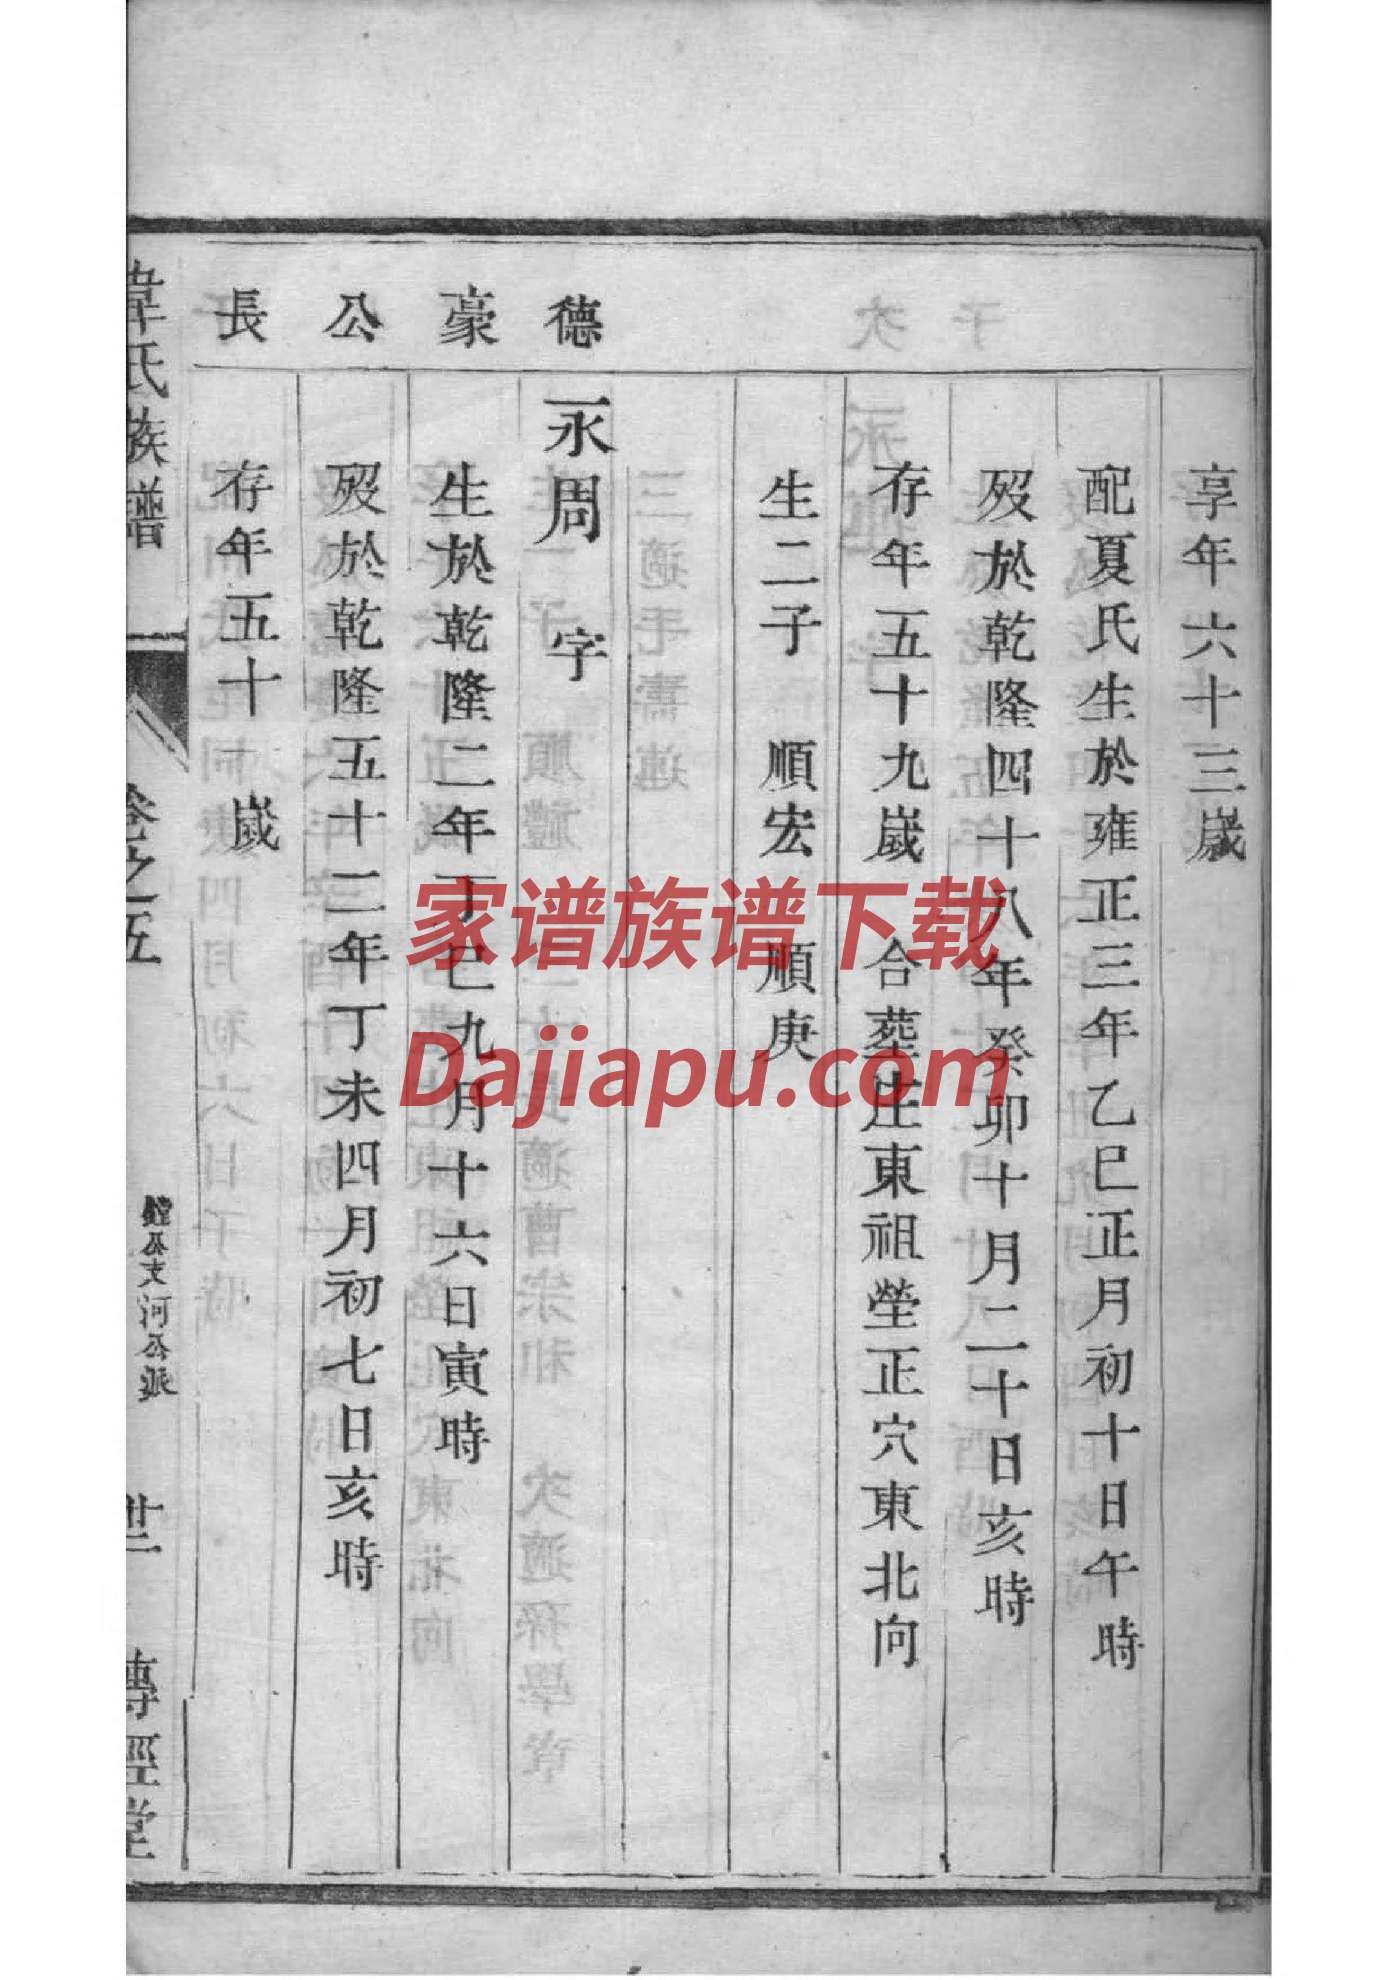 享年六十三歲
配夏氏生於雍正三年乙巳正月初十日午時
歿於乾隆四十八年癸卯十月二十日亥時
存年五十九歲 合葬庄東祖塋正穴東北向
生二子 順宏 順庚
德 永周 字
豪 生於乾隆二年丁巳九月十六日寅時
公 歿於乾隆五十二年丁未四月初七日亥時
長 存年五十 歲
韋氏族譜 卷之五 鏜公支河公派 廿二 傳經堂
家谱族谱下载
Dajiapu.com